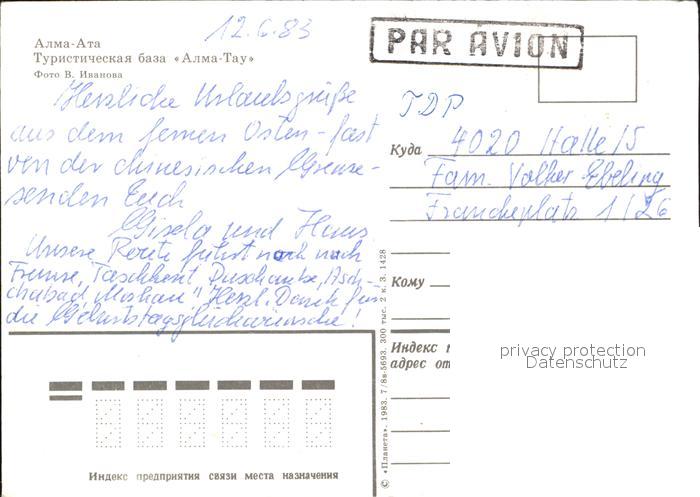 12.6.83
PAR AVION
Алма-Ата
Туристическая база «Алма-Тау»
Фото В. Иванова
Herzliche Urlaubsgrüße
aus dem fernen Osten - fast
von der chinesischen Grenze -
senden Euch
Gisela und Hans
Unsere Route führt noch nach
Frunse, Taschkent, Duschanbe, Asch-
chabad, Moskau. Herzl. Dank für
die Geburtstagsglückwünsche!
ГДР
Куда 4020 Halle/S
Fam. Volker Ebeling
Franckeplatz 1/26
Кому
Индекс
адрес от
privacy protection
Datenschutz
© «Планета». 1983. 7/8в-5693. 300 тыс. 2 к. З. 1428
Индекс предприятия связи места назначения